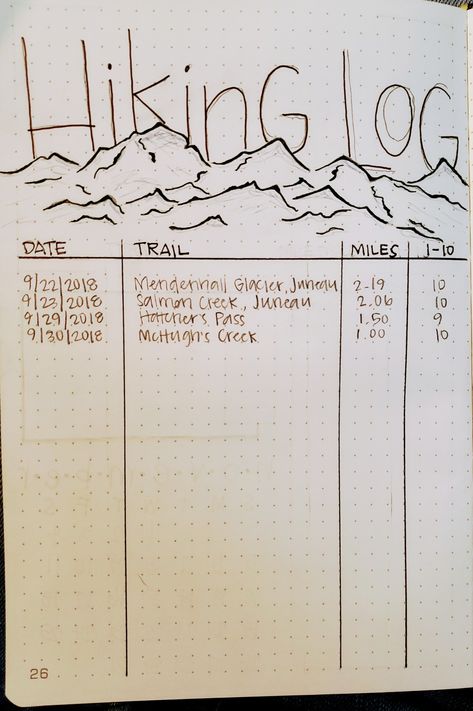 HikinG LoG
DATE TRAIL MILES 1-10
9/22/2018 Mendenhall Glacier, Juneau 2.19 10
9/23/2018 Salmon Creek, Juneau 2.06 10
9/29/2018 Hatcher's Pass 1.50 9
9/30/2018 McHugh's Creek 1.00 10
26